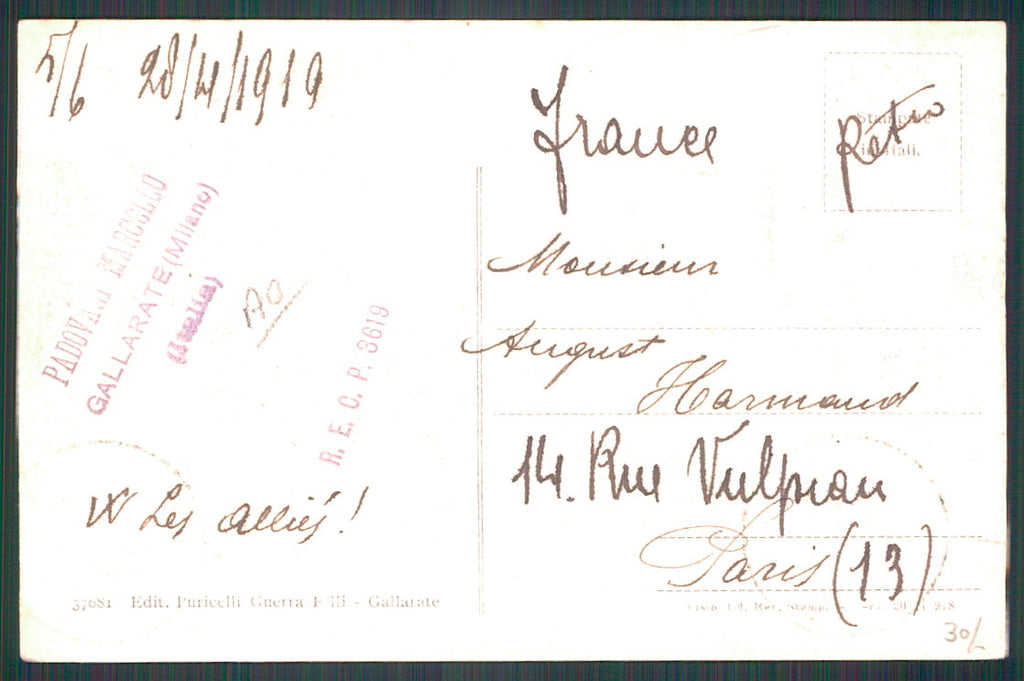 5/6 28/4/1919
PADOVANI MARCELLO
GALLARATE (Milano)
(Italia)
AO
R. E. C. P. 3619
W Les alliés!
37681 Edit. Puricelli Guerra F.lli - Gallarate
France
Monsieur
August
Harmand
14. Rue Vulpian
Paris (13)
30/